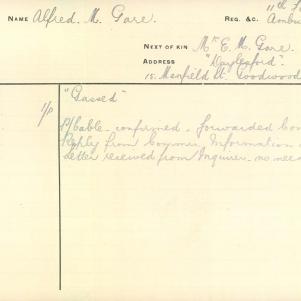 NAME Alfred. M. Gore. REG. &C. 11th F
Ambul
NEXT OF KIN Mr E. M. Gore.
ADDRESS "Daylesford".
15. Manfield St. Goodwood
1/P "Gassed"
P/bable - confirmed - forwarded Com
Reply from Commr. Information
Letter received from Inquirer - no need